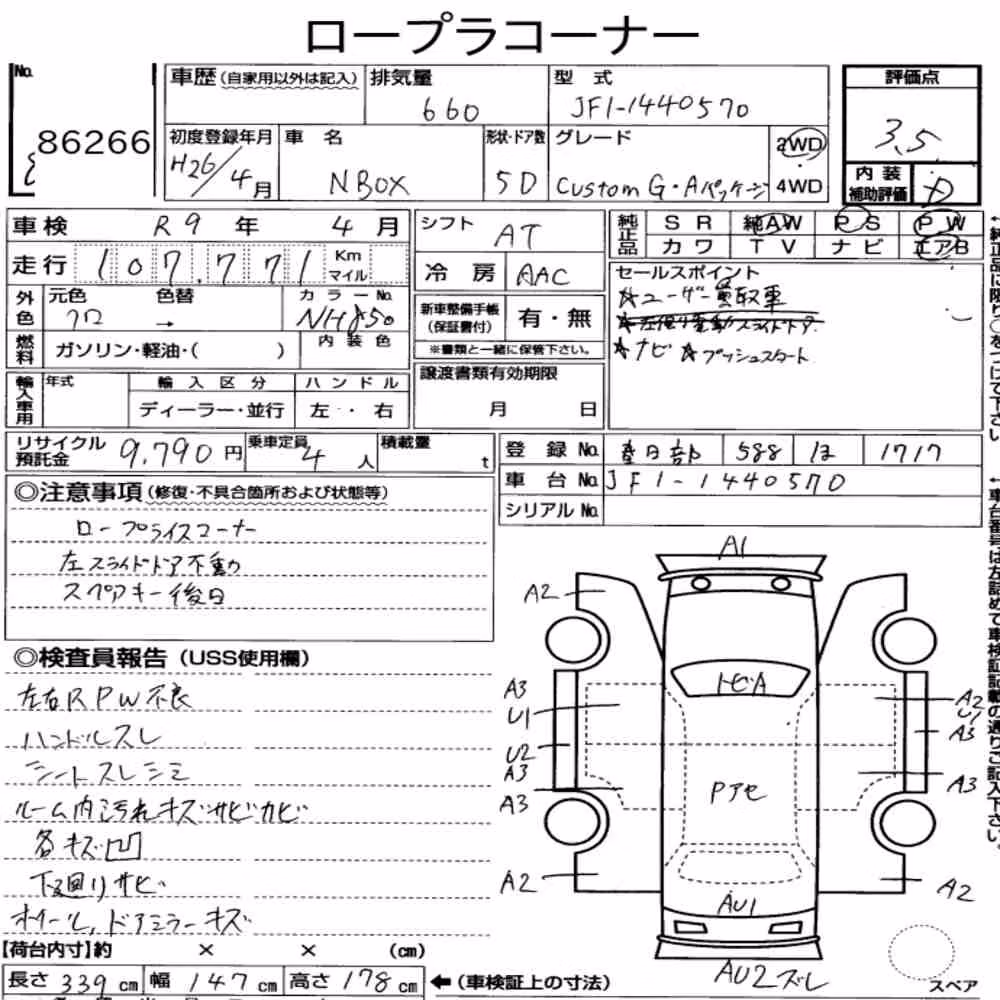 ロープラコーナー
No. 86266
車歴(自家用以外は記入)
排気量 660
型式 JF1-1440570
評価点 3.5
初度登録年月 H26/4月
車名 NBOX
形状・ドア数 5D
グレード Custom G・Aパッケージ
2WD
4WD
内装補助評価 D
車検 R9年 4月
シフト AT
純正品 SR 純AW PS PW
カワ TV ナビ エアB
走行 107,771 Km マイル
冷房 AAC
セールスポイント
☆ユーザー買取車
☆左側電動スライドドア
☆ナビ ☆プッシュスタート
外色 元色 クロ 色替 → カラーNo. NH850
新車整備手帳(保証書付) 有・無
※書類と一緒に保管下さい。
燃料 ガソリン・軽油・( )
内装色
譲渡書類有効期限
月 日
輸入車用 年式 輸入区分 ハンドル
ディーラー・並行 左・右
リサイクル預託金 9,790円
乗車定員 4人
積載量 t
登録No. 春日部 588 ほ 1717
車台No. JF1-1440570
シリアルNo.
◎注意事項(修復・不具合箇所および状態等)
ロープライスコーナー
左スライドドア不動
スペアキー後日
◎検査員報告(USS使用欄)
左右RPW不良
ハンドルスレ
シートスレシミ
ルーム内汚れキズサビカビ
各キズ凹
下廻りサビ
ホイール,ドアミラーキズ
A1
A2
トビA
A3
U1
U2
A3
A3
A2
U1
A3
A3
Pアセ
A2
A2
AU1
AU2ズレ
スペア
【荷台内寸】約 × × (cm)
長さ 339cm 幅 147cm 高さ 178cm ←(車検証上の寸法)
←純正品に限り○をつけて下さい
←車台番号は左詰めて車検証記載の通りご記入下さい。